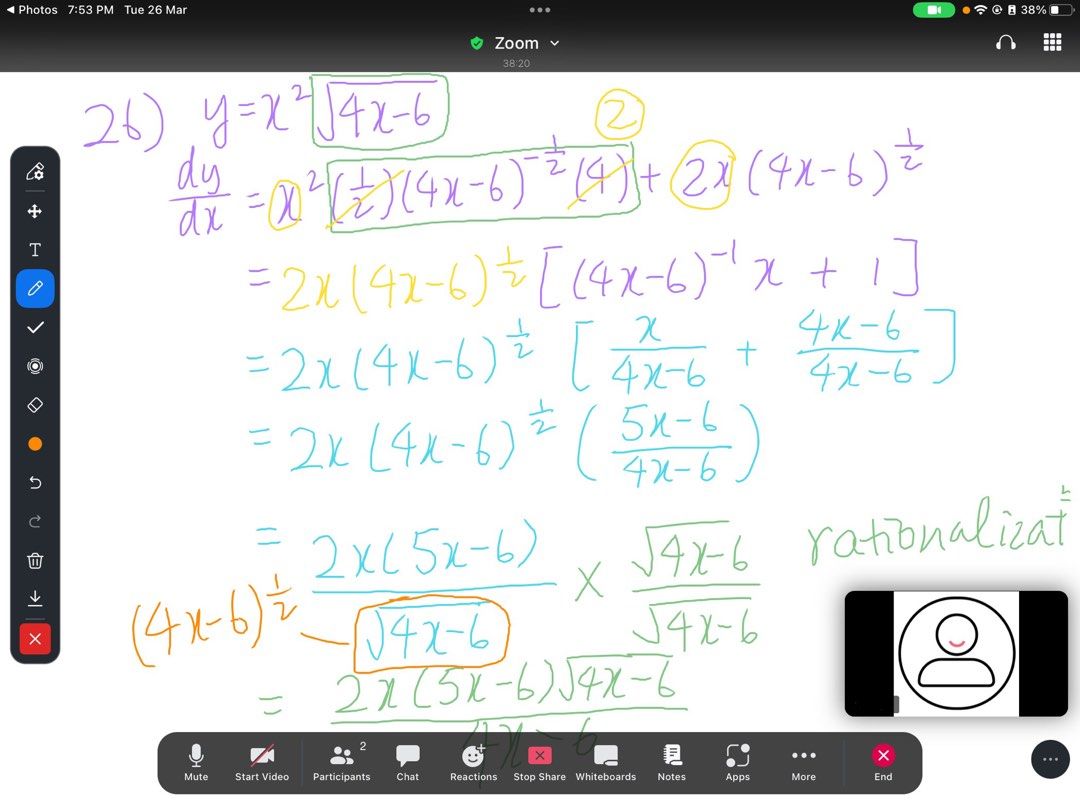 Photos 7:53 PM Tue 26 Mar
38%
Zoom
38:20
26) y=x²√4x-6
2
dy/dx = x²(1/2)(4x-6)^-1/2(4) + 2x(4x-6)^1/2
= 2x(4x-6)^1/2[(4x-6)^-1 x + 1]
= 2x(4x-6)^1/2 [x/4x-6 + 4x-6/4x-6]
= 2x(4x-6)^1/2 (5x-6/4x-6)
= 2x(5x-6)/√4x-6 × √4x-6/√4x-6 rationalizat
(4x-6)^1/2
= 2x(5x-6)√4x-6/4x-6
T
2
Mute Start Video Participants Chat Reactions Stop Share Whiteboards Notes Apps More End